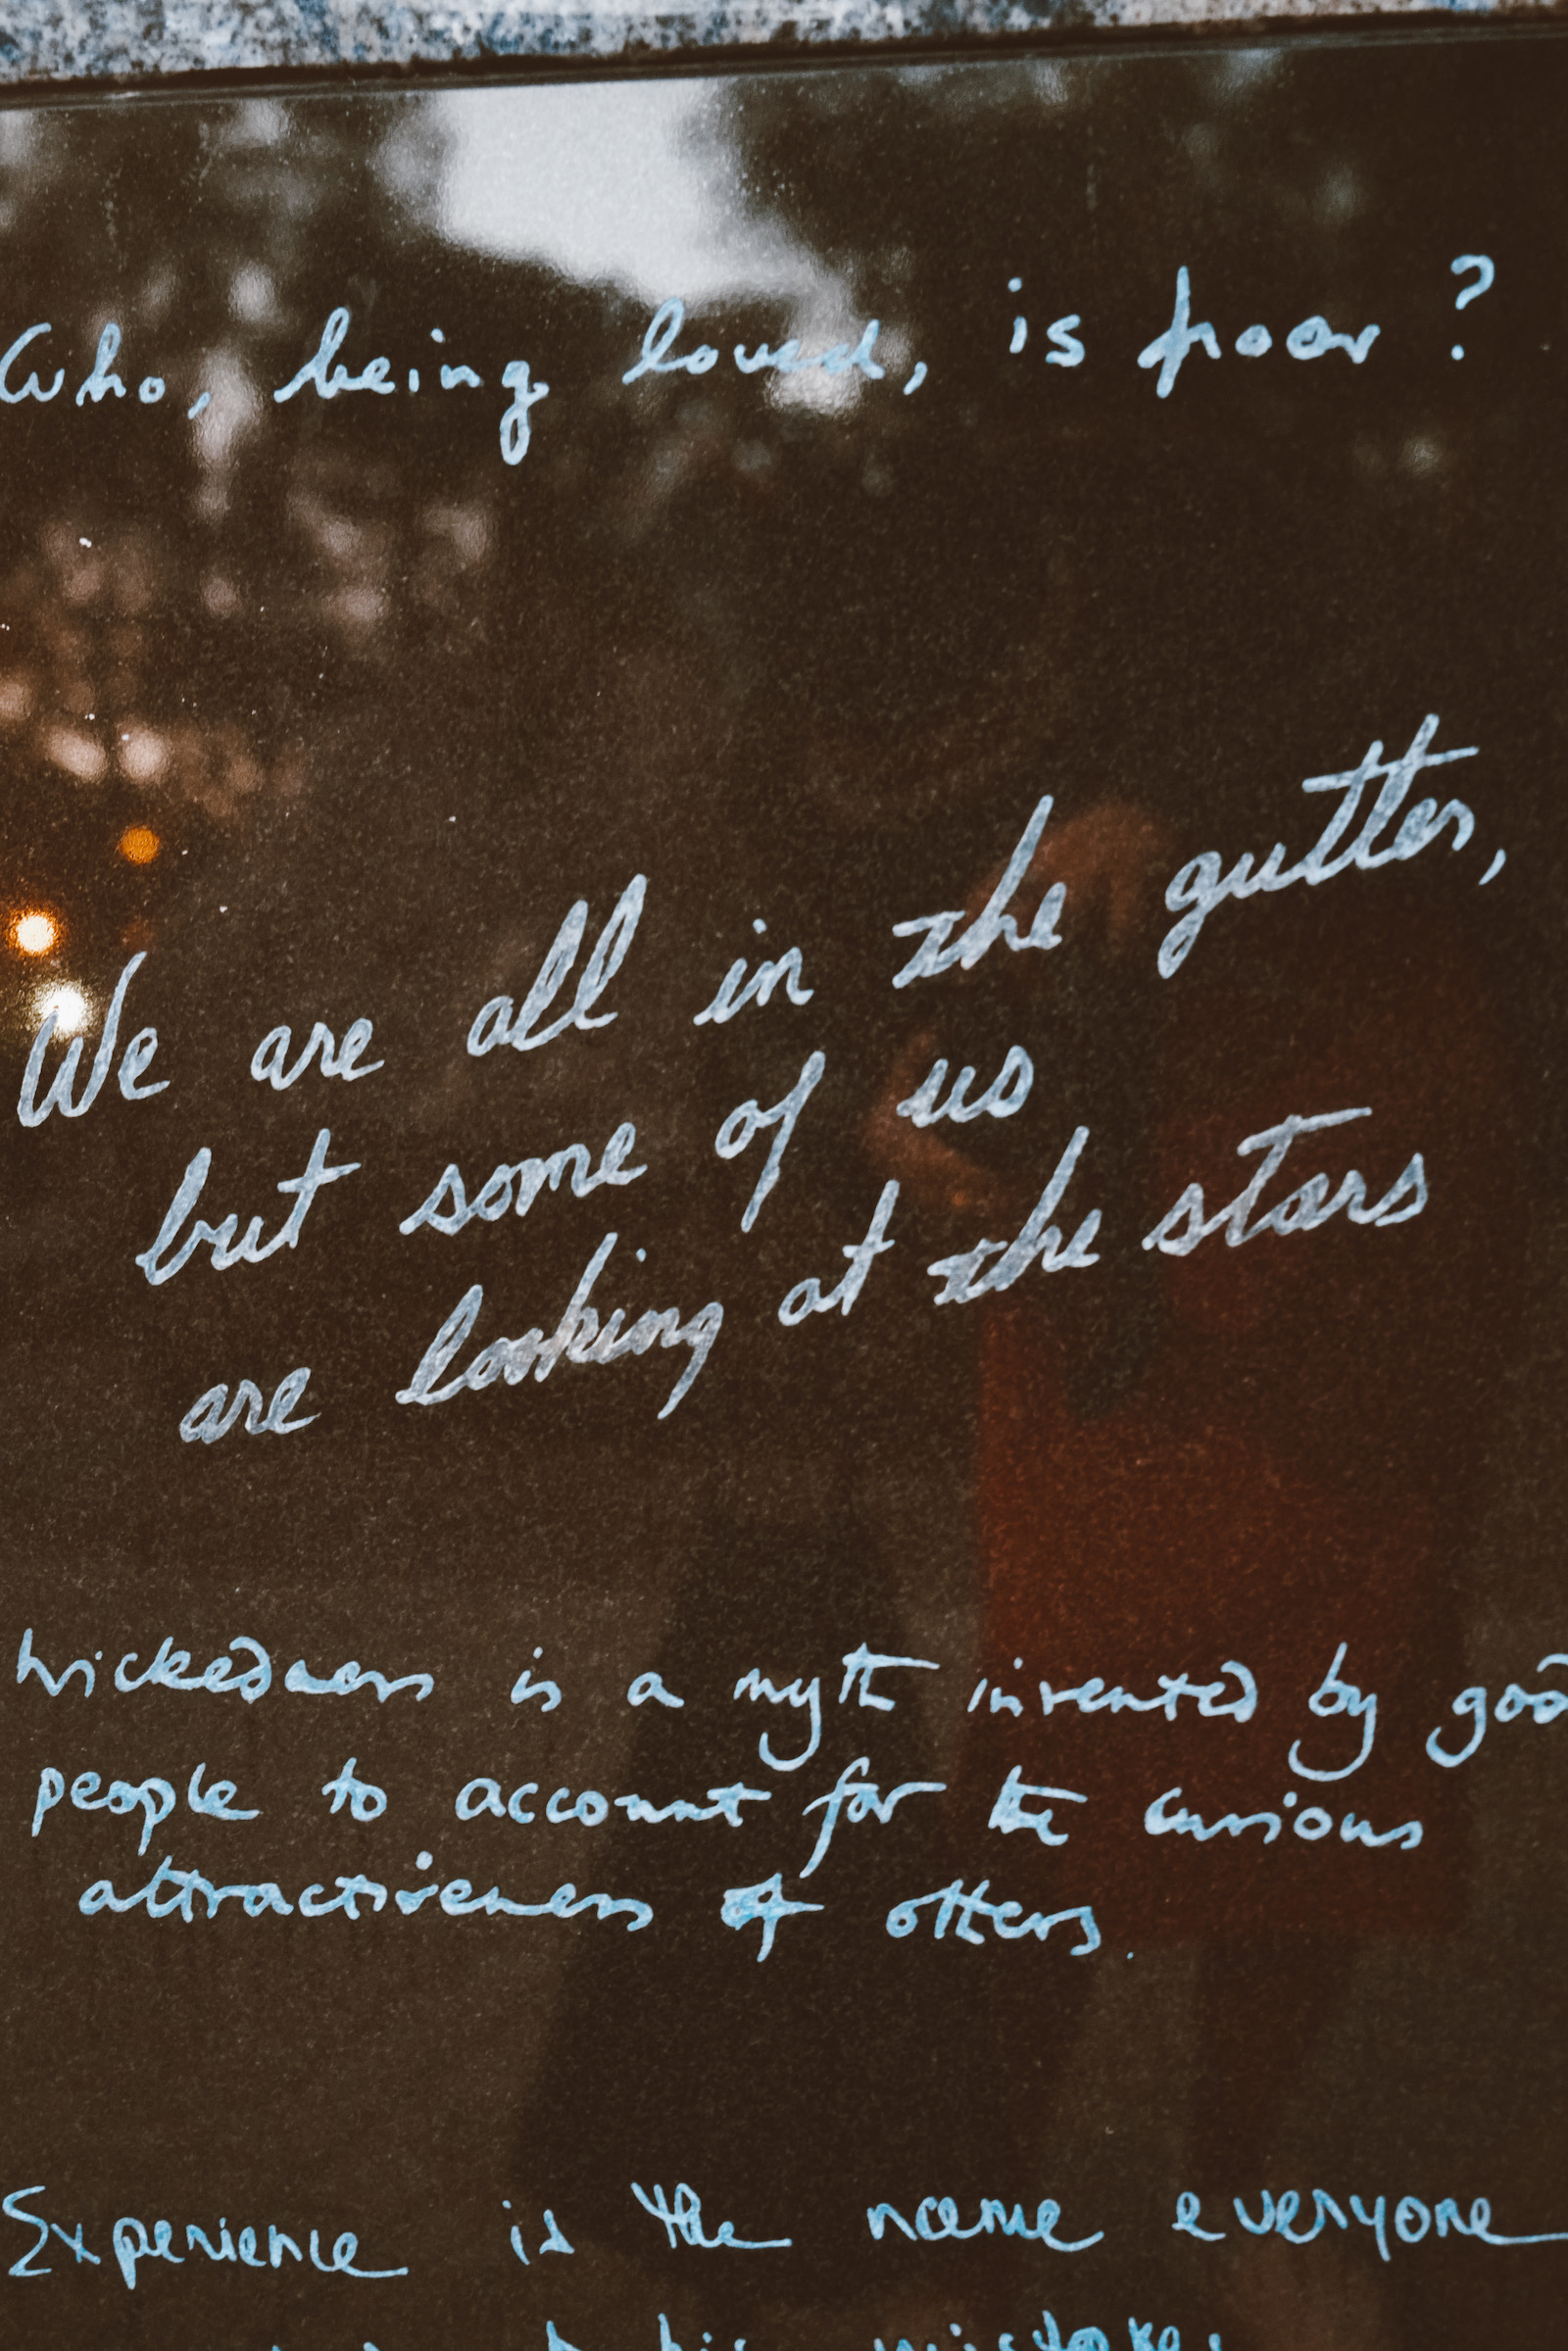 Who, being loved, is poor?
We are all in the gutter,
but some of us
are looking at the stars
Wickedness is a myth invented by good
people to account for the curious
attractiveness of others.
Experience is the name everyone
to his mistakes